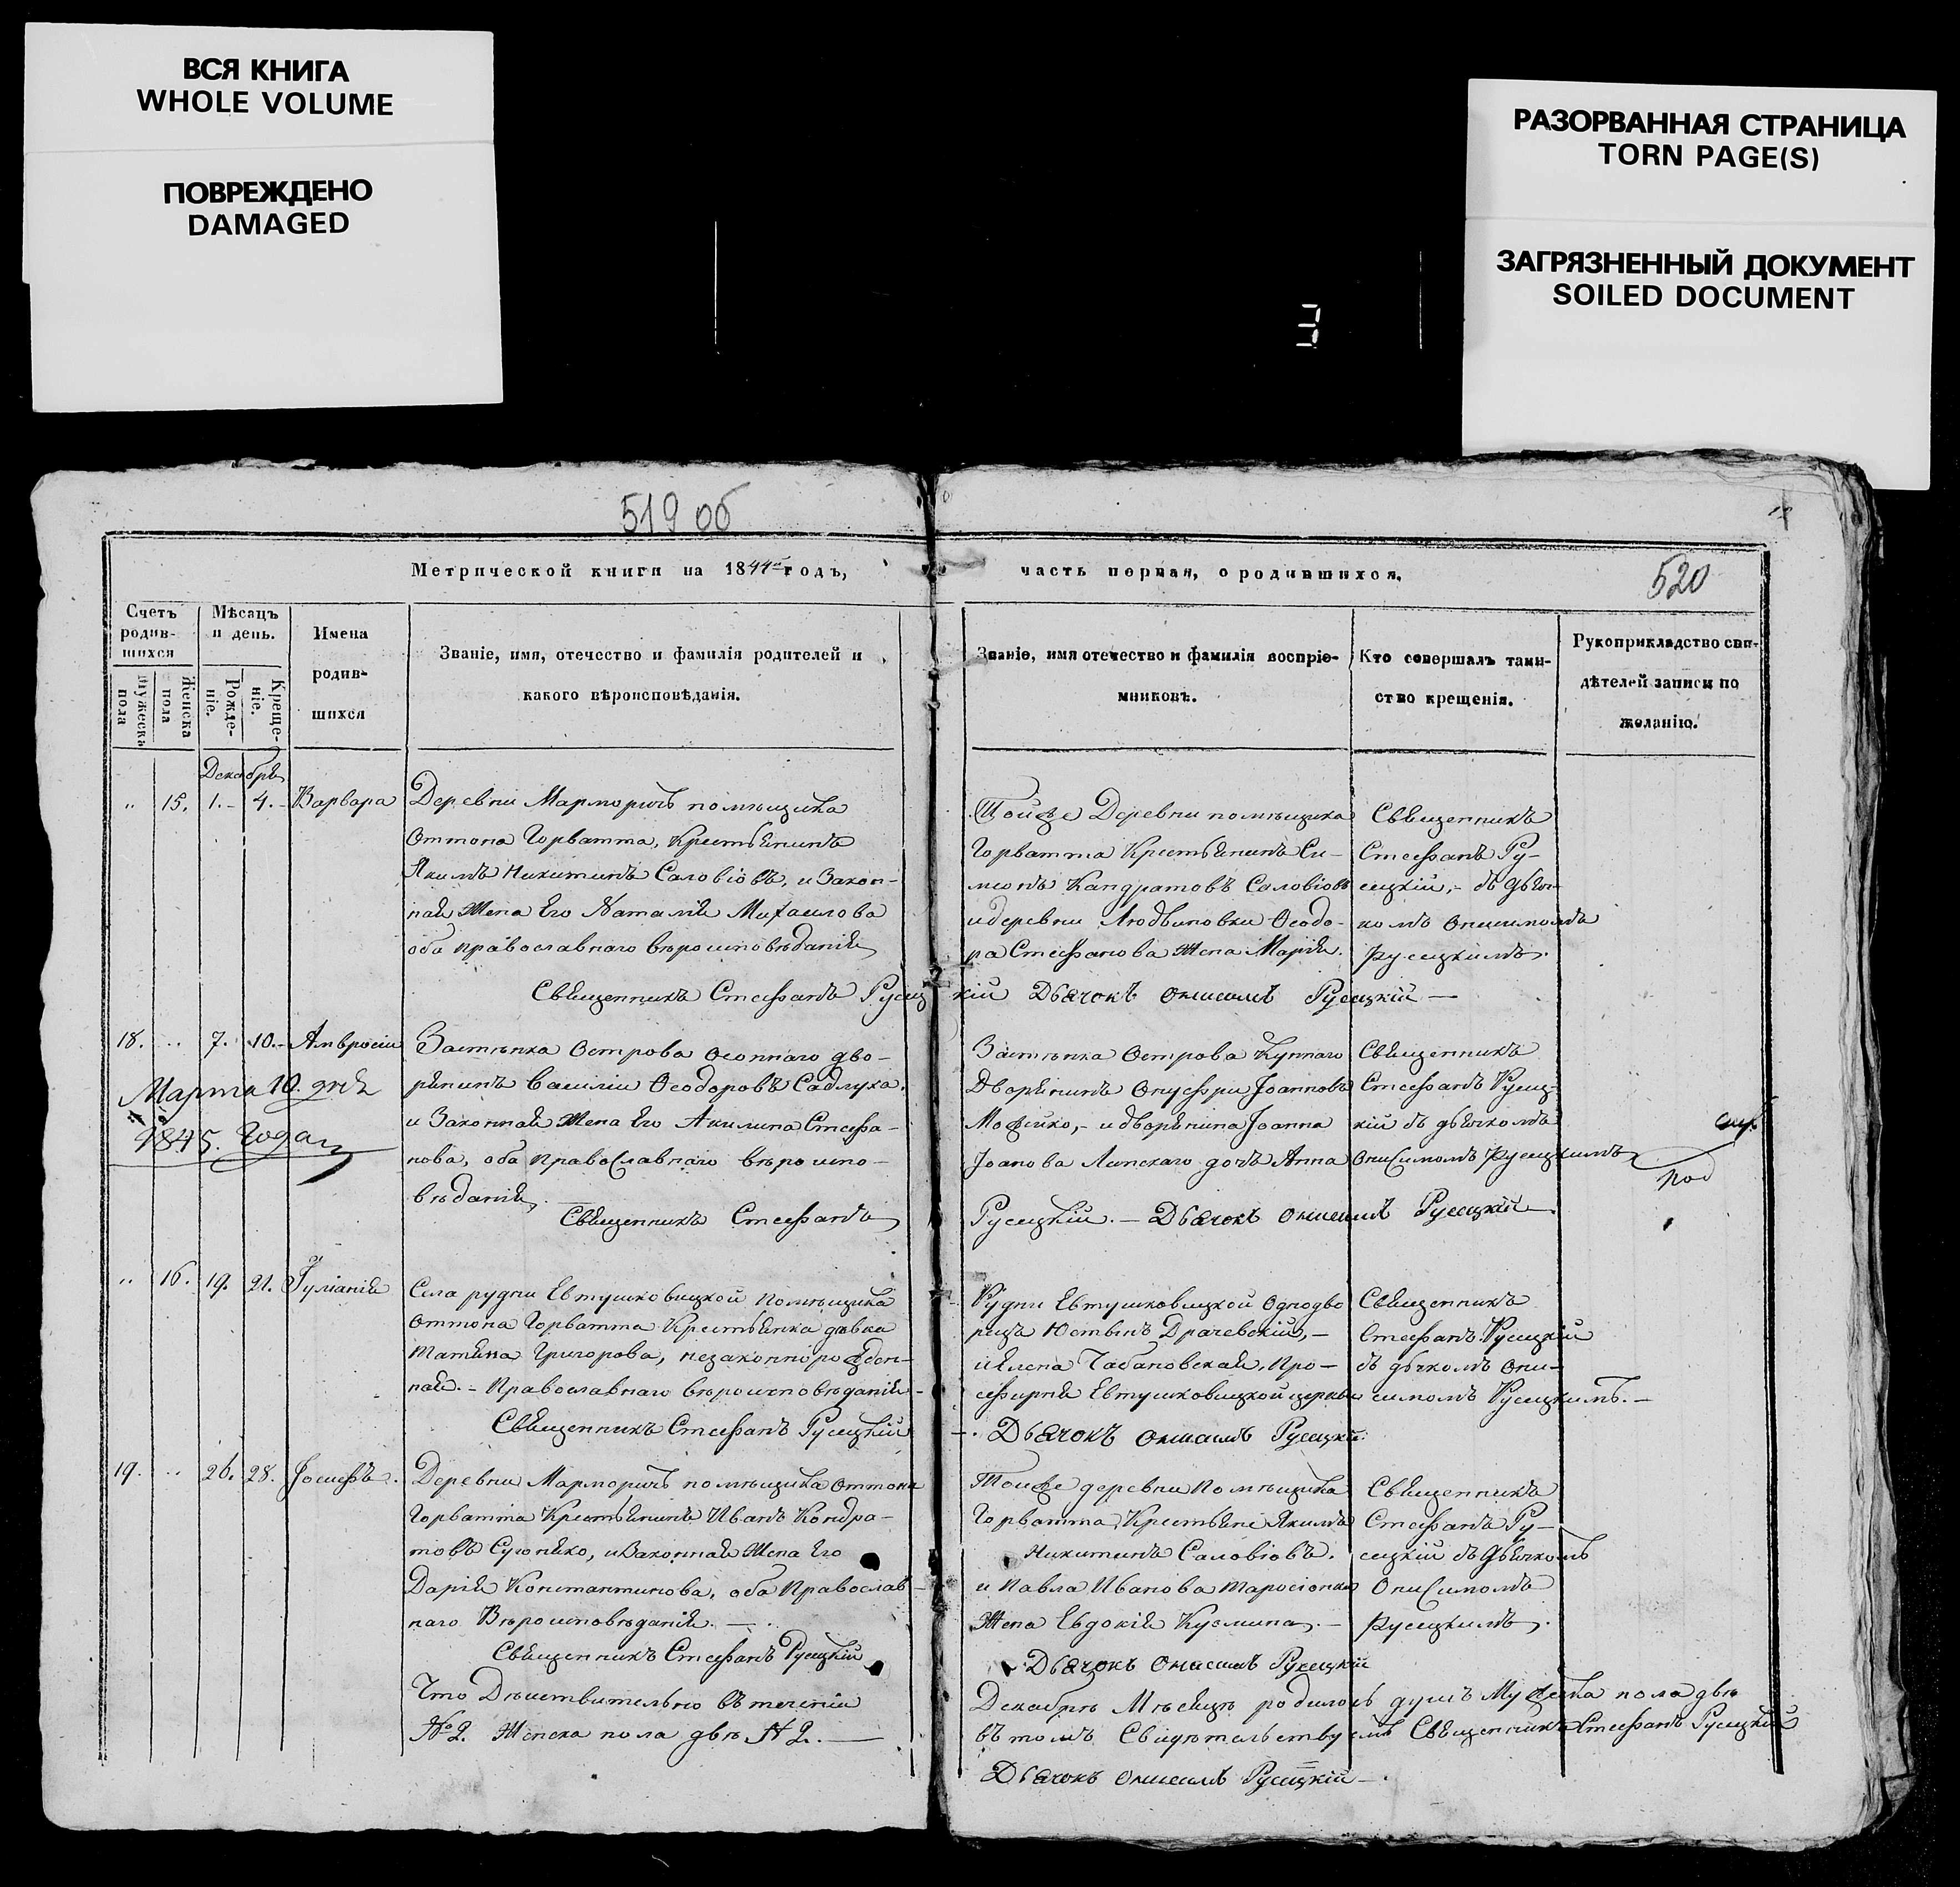 ВСЯ КНИГА
WHOLE VOLUME
ПОВРЕЖДЕНО
DAMAGED
РАЗОРВАННАЯ СТРАНИЦА
TORN PAGE(S)
ЗАГРЯЗНЕННЫЙ ДОКУМЕНТ
SOILED DOCUMENT
519 об
Метрической книги на 1844й годъ,
часть первая, о родившихся.
520
Счетъ родив-шихся
Мужеска пола
Женска пола
Мѣсяцъ и день.
Рожде-ніе.
Креще-ніе.
Имена родив-шихся
Званіе, имя, отечество и фамилія родителей и
какого вѣроисповѣданія.
Званіе, имя отечество и фамилія воспріе-
мниковъ.
Кто совершалъ таин-
ство крещенія.
Рукоприкладство сви-
дѣтелей записи по
желанію.
Декабрь
" 15. 1.- 4.- Варвара
Деревни Марморичъ помѣщика
Оттона Горватта, Крестьянинъ
Якимъ Никитинъ Саловіовъ, и Закон-
ная Жена Его Наталія Михаилова
оба православнаго вѣроисповѣданія
Тойже Деревни помѣщика
Горватта Крестьянинъ Си-
меонъ Кандратовъ Саловіовъ
и деревни Людвиновки Ѳеодо-
ра Стефанова Жена Марія.
Священникъ
Стефанъ Ру-
сецкій, - съ дьяч-
комъ Онисимомъ
Русецкимъ.
Священникъ Стефанъ Русецкій Дьячокъ Онисимъ Русецкій —
18. .. 7. 10.- Амвросій
Марта 10. дня
1845. Года
Застѣнка Острова Осоннаго дво-
рянинъ Василии Ѳеодоровъ Садлуха.
и Законная Жена Его Акилина Стефа-
нова, оба Православнаго вѣроиспо-
вѣданія.
Застѣнка Острова Купнаго
Дворянинъ Онуфри Іоанновъ
Можейко, - и дворянина Іоанна
Іоанова Липскаго дочь Анна
Священникъ
Стефанъ Русец-
кій съ дьячкомъ
Онисимомъ Русецкимъ
под
Священникъ Стефанъ Русецкій. — Дьячокъ Онисимъ Русецкій —
" 16. 19. 21. Іуліанія
Села рудни Евтушковицкой помѣщика
Оттона Горватта Крестьянка дѣвка
Татьяна Григорова, незаконнорожден-
ная. - Православнаго вѣроисповѣданія -
Рудни Евтушковицкой Однодво
рецъ Юстынъ Драчевскій, —
и Елена Чабановская, Про-
сфирня Евтушковицкой церкви
Священникъ
Стефанъ Русецкій
съ дьячкомъ Они-
симомъ Русецкимъ. —
Священникъ Стефанъ Русецкій —. Дьячокъ Онисимъ Русецкій.
19. .. 26. 28. Іосифъ.
Деревни Марморичъ помѣщика Оттона
Горватта Крестьянинъ Иванъ Кондра-
товъ Сугонѣко, и Законная Жена Его
Дарія Константинова, оба Православ-
наго Вѣроисповѣданія. —
Тойже деревни Помѣщика
Горватта, Крестьяне Якимъ
Никитинъ Саловіовъ.
и Павла Иванова Таросіонка
Жена Евдокія Кузмина. —
Священникъ
Стефанъ Ру-
сецкій съ Дьячкомъ
Онисимомъ
Русецкимъ.
Священникъ Стефанъ Русецкій Дьячокъ Онисимъ Русецкій
Что Дѣиствительно въ теченіи Декабрѣ Мѣсяцѣ родилось душъ Мужеска пола двѣ
№ 2. Женска пола двѣ № 2. — въ томъ Свидѣтельствуемъ Священникъ Стефанъ Русецкій
Дьячокъ Онисимъ Русецкій —.